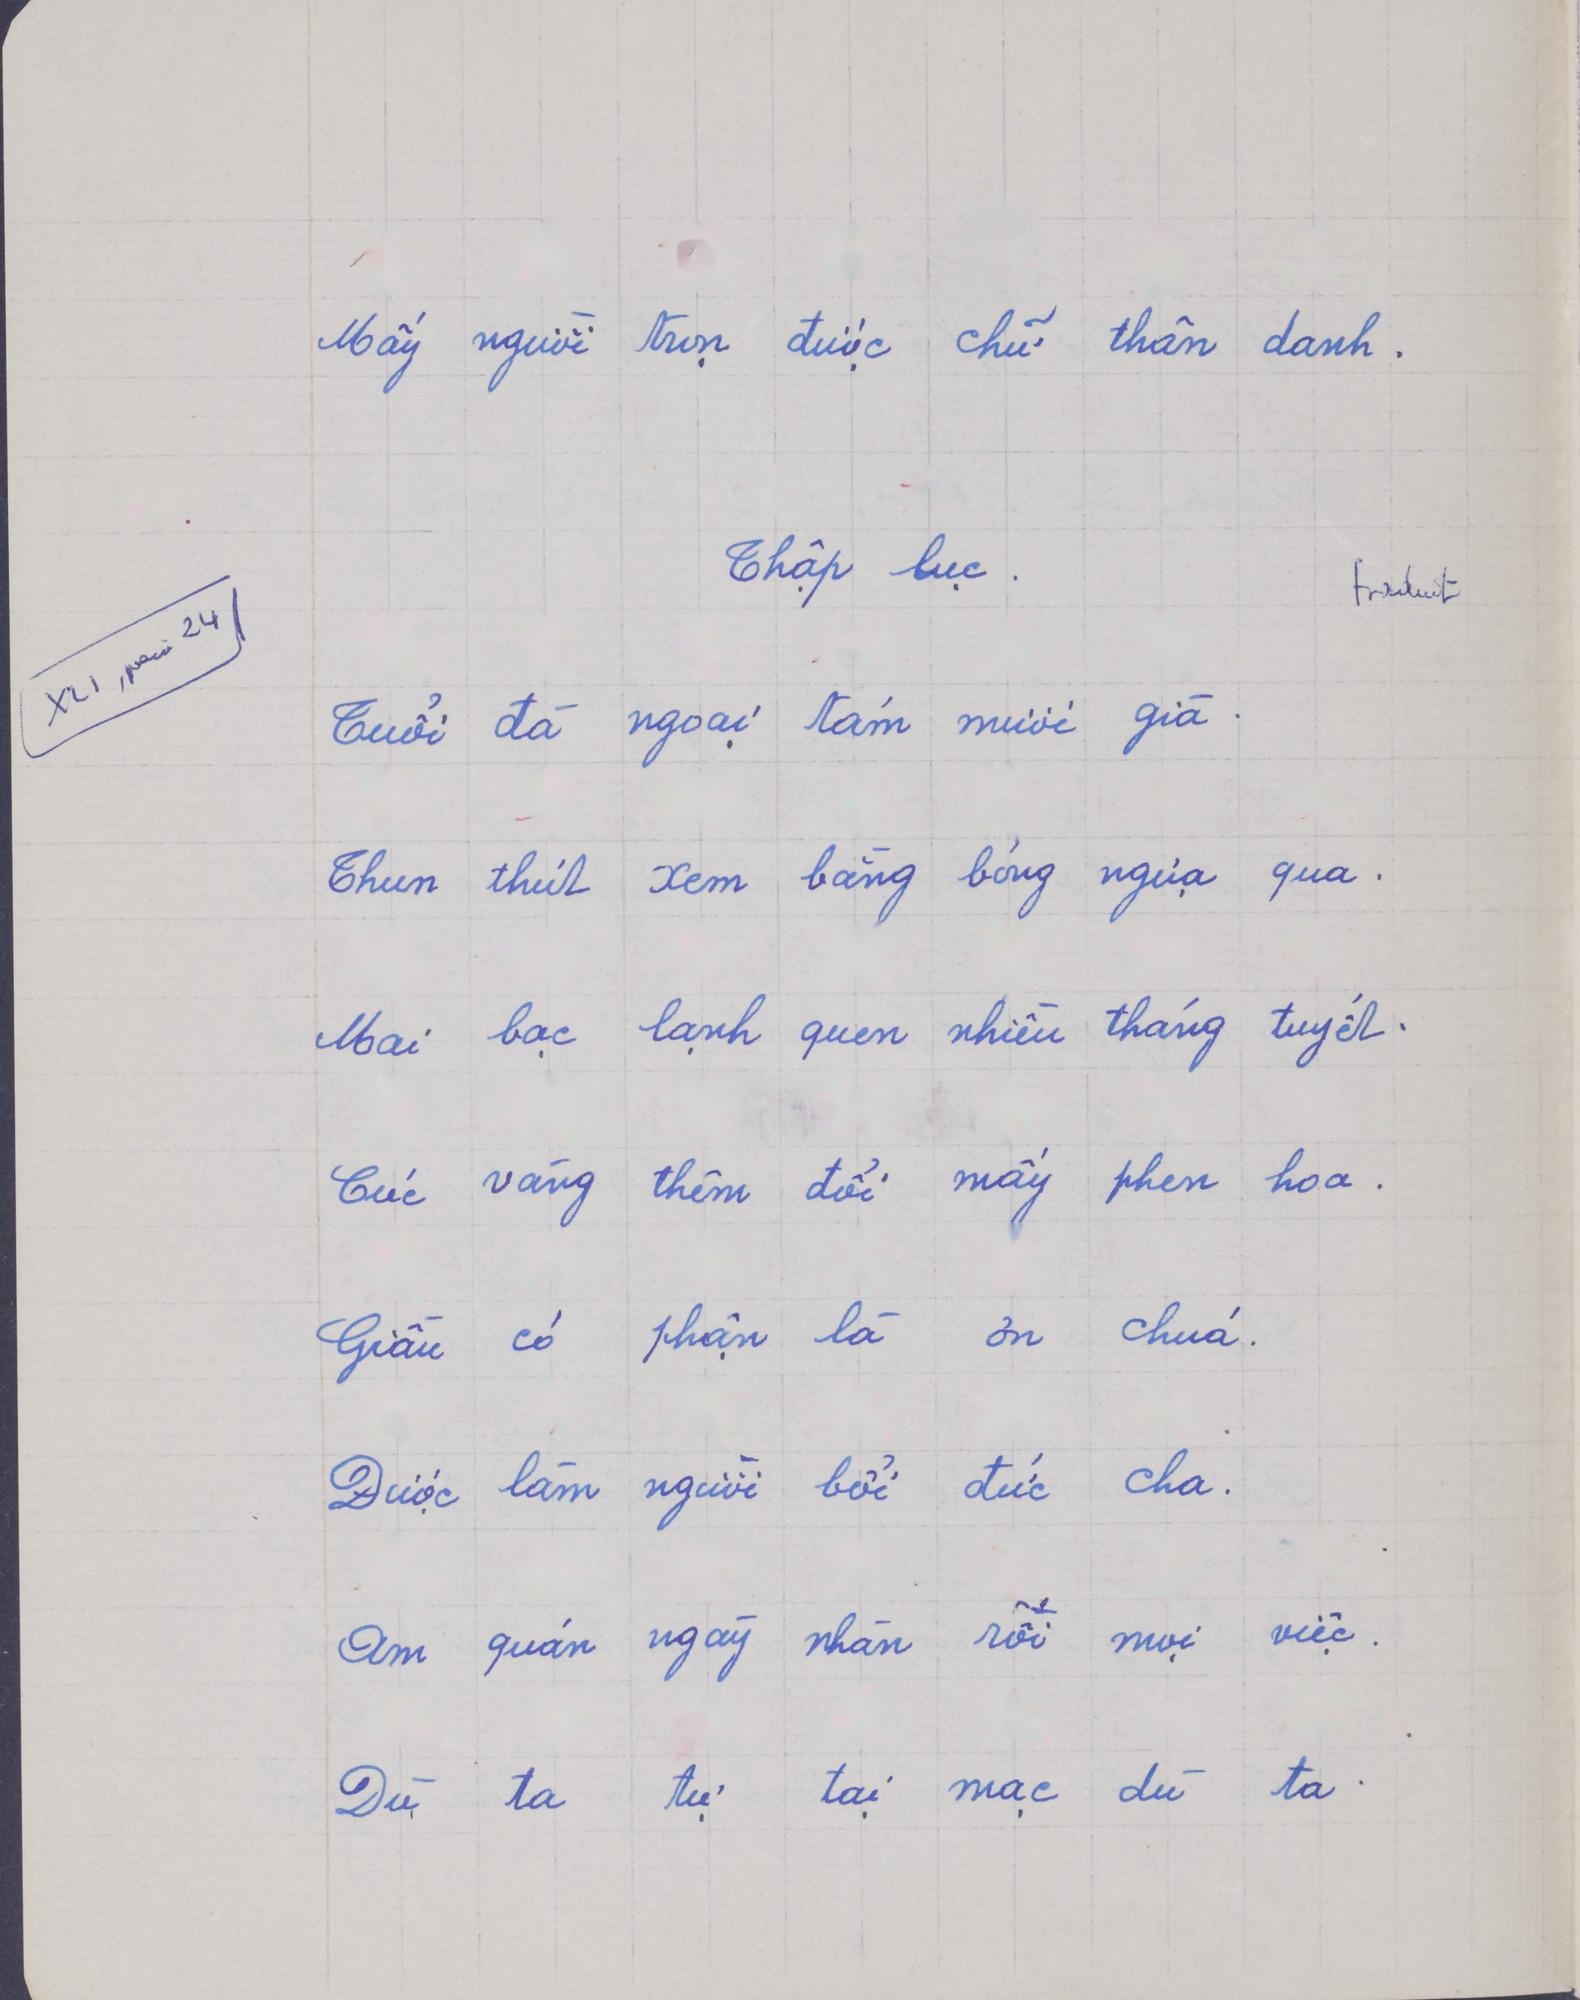 Mấy người trọn được chữ thân danh.
Thập lục.
traduit
XVI, 24
Tuổi đã ngoại tám mươi già.
Thun thút xem bằng bóng ngựa qua.
Mai bạc lạnh quen nhiều tháng tuyết.
Cúc vàng thêm đổi mấy phen hoa.
Giầu có phận là ơn chuá.
Được làm người bởi đức cha.
Am quán ngaỳ nhàn rồi mọi việc.
Dù ta tự tại mạc dù ta.